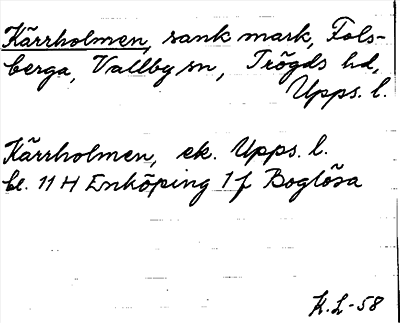 Kärrholmen, sank mark, Fols-
berga, Vallby sn, Trögds hd,
Upps. l.
Kärrholmen, ek. Upps. l.
bl. 11 H Enköping 1 f Boglösa
K.L-58